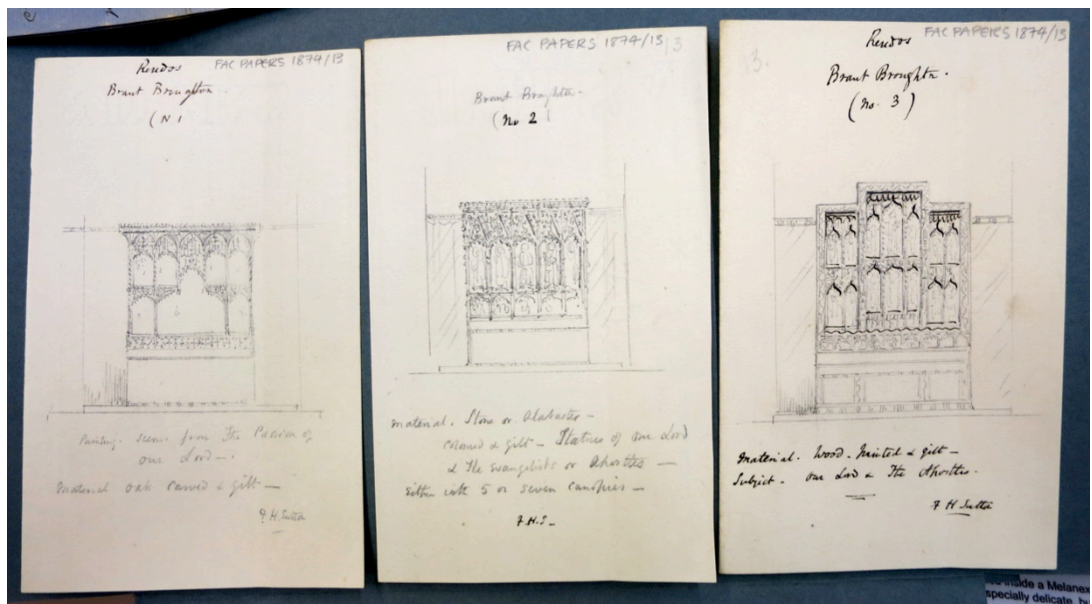 Reredos
FAC PAPERS 1874/13
Brant Broughton.
(N 1
Painting. Scenes from The Passion of
our Lord —.
Material oak carved & gilt —
F. H. Sutton
FAC PAPERS 1874/13
13
Brant Broughton.
(No 2)
Material. Stone or Alabaster —
coloured & gilt — Statues of our Lord
& The Evangelists or Apostles —
Either with 5 or seven canopies —
F.H.S —
Reredos
FAC PAPERS 1874/13
13.
Brant Broughton.
(No. 3)
Material. Wood. Painted & gilt —
Subject. Our Lord & The Apostles.
F H Sutton
inside a Melanex
specially delicate